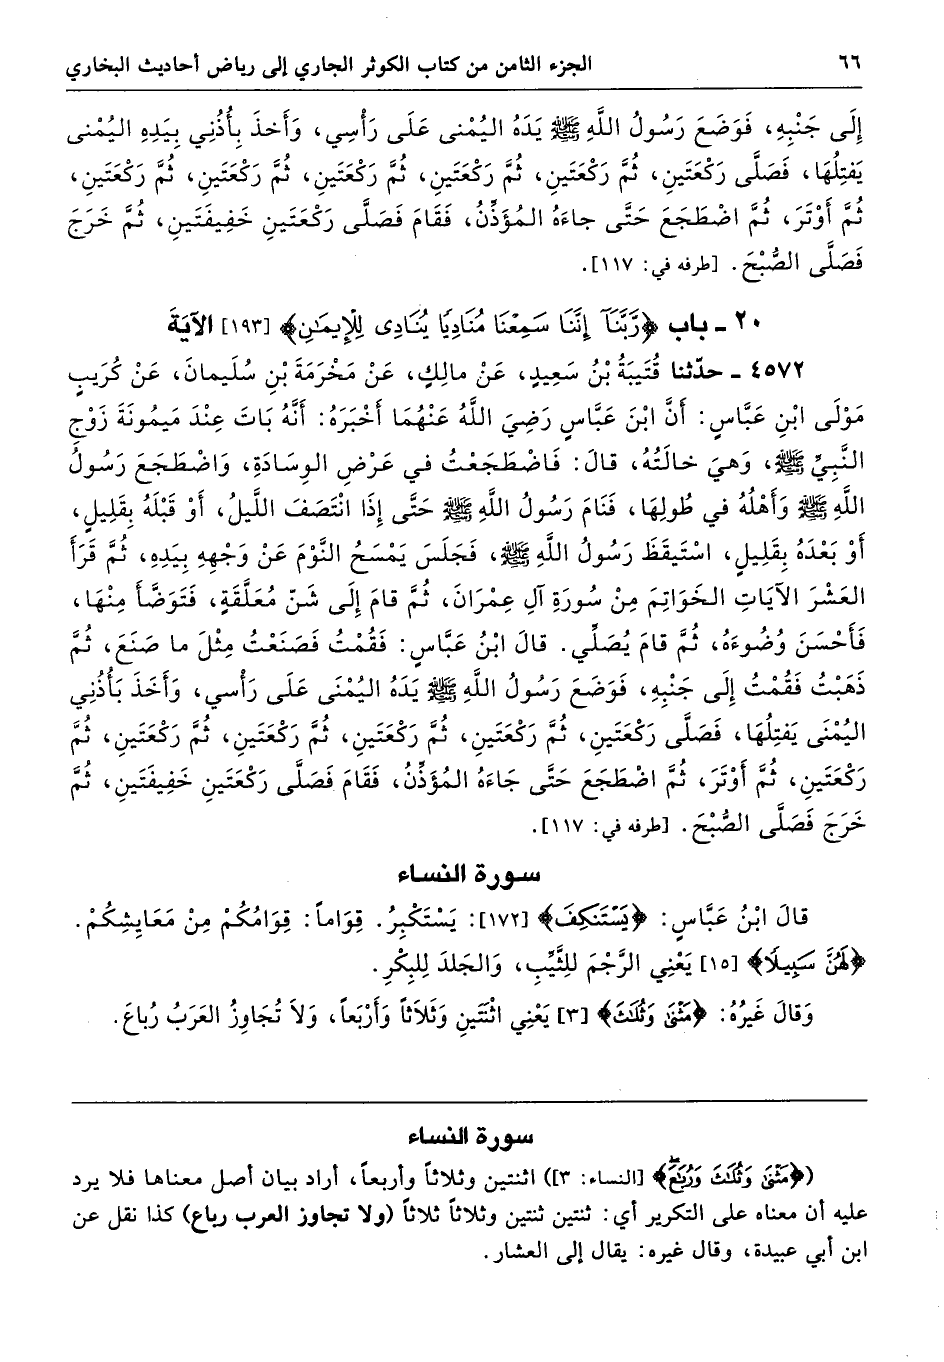 ٦٦ الجزء الثامن من كتاب الكوثر الجاري إلى رياض أحاديث البخاري
إِلَى جَنْبِهِ، فَوَضَعَ رَسُولُ اللَّهِ ﷺ يَدَهُ اليُمْنى عَلَى رَأْسِي، وَأَخذَ بِأُذُنِي بِيَدِهِ اليُمْنى
يَفتِلُهَا، فَصَلَّى رَكْعَتَينِ، ثُمَّ رَكْعَتَينِ، ثُمَّ رَكْعَتَينِ، ثُمَّ رَكْعَتَينِ، ثُمَّ رَكْعَتَينِ، ثُمَّ رَكْعَتَينِ،
ثُمَّ أَوْتَرَ، ثُمَّ اضْطَجَعَ حَتَّى جاءَهُ المُؤَذِّنُ، فَقَامَ فَصَلَّى رَكْعَتَينِ خَفِيفَتَينِ، ثُمَّ خَرَجَ
فَصَلَّى الصُّبْحَ. [طرفه في: ١١٧].
٢٠ ـ باب ﴿رَّبَّنَآ إِنَّنَا سَمِعْنَا مُنَادِيًا يُنَادِى لِلْإِيمَـٰنِ﴾ [١٩٣] الآيَةَ
٤٥٧٢ ـ حدّثنا قُتَيبَةُ بْنُ سَعِيدٍ، عَنْ مالِكٍ، عَنْ مَخْرَمَةَ بْنِ سُلَيمانَ، عَنْ كُرَيبٍ
مَوْلَى ابْنِ عَبَّاسٍ: أَنَّ ابْنَ عَبَّاسٍ رَضِيَ اللَّهُ عَنْهُمَا أَخْبَرَهُ: أَنَّهُ بَاتَ عِنْدَ مَيمُونَةَ زَوْجِ
النَّبِيِّ ﷺ، وَهيَ خالَتُهُ، قالَ: فَاضْطَجَعْتُ في عَرْضِ الوِسَادَةِ، وَاضْطَجَعَ رَسُولُ
اللَّهِ ﷺ وَأَهْلُهُ في طُولِهَا، فَنَامَ رَسُولُ اللَّهِ ﷺ حَتَّى إِذَا انْتَصَفَ اللَّيلُ، أَوْ قَبْلَهُ بِقَلِيلٍ،
أَوْ بَعْدَهُ بِقَلِيلٍ، اسْتَيقَظَ رَسُولُ اللَّهِ ﷺ، فَجَلَسَ يَمْسَحُ النَّوْمَ عَنْ وَجْهِهِ بِيَدِهِ، ثُمَّ قَرَأَ
العَشْرَ الآيَاتِ الخَوَاتِمَ مِنْ سُورَةِ آلِ عِمْرَانَ، ثُمَّ قامَ إِلَى شَنٍّ مُعَلَّقَةٍ، فَتَوَضَّأَ مِنْهَا،
فَأَحْسَنَ وُضُوءَهُ، ثُمَّ قامَ يُصَلِّي. قالَ ابْنُ عَبَّاسٍ: فَقُمْتُ فَصَنَعْتُ مِثْلَ ما صَنَعَ، ثُمَّ
ذَهَبْتُ فَقُمْتُ إِلَى جَنْبِهِ، فَوَضَعَ رَسُولُ اللَّهِ ﷺ يَدَهُ اليُمْنَى عَلَى رَأْسي، وَأَخَذَ بَأُذُنِي
اليُمْنَى يَفتِلُهَا، فَصَلَّى رَكْعَتَينِ، ثُمَّ رَكْعَتَينِ، ثُمَّ رَكْعَتَينِ، ثُمَّ رَكْعَتَينِ، ثُمَّ رَكْعَتَينِ، ثُمَّ
رَكْعَتَينِ، ثُمَّ أَوْتَرَ، ثُمَّ اضْطَجَعَ حَتَّى جَاءَهُ المُؤَذِّنُ، فَقَامَ فَصَلَّى رَكْعَتَينِ خَفِيفَتَينِ، ثُمَّ
خَرَجَ فَصَلَّى الصُّبْحَ. [طرفه في: ١١٧].
سورة النساء
قالَ ابْنُ عَبَّاسٍ: ﴿يَسْتَنكِفَ﴾ [١٧٢]: يَسْتَكْبِرُ. قِوَاماً: قِوَامُكُمْ مِنْ مَعَايِشِكُمْ.
﴿لَهُنَّ سَبِيلًا﴾ [١٥] يَعْنِي الرَّجْمَ لِلثَّيِّبِ، وَالجَلدَ لِلبِكْرِ.
وَقالَ غَيرُهُ: ﴿مَثْنَىٰ وَثُلَـٰثَ﴾ [٣] يَعْنِي اثْنَتَينِ وَثَلاَثاً وَأَرْبَعاً، وَلاَ تُجَاوِزُ العَرَبُ رُباعَ.
سورة النساء
(﴿مَثْنَىٰ وَثُلَـٰثَ وَرُبَـٰعَۖ﴾ [النساء: ٣]) اثنتين وثلاثاً وأربعاً، أراد بيان أصل معناها فلا يرد
عليه أن معناه على التكرير أي: ثنتين ثنتين وثلاثاً ثلاثاً (ولا تجاوز العرب رباع) كذا نقل عن
ابن أبي عبيدة، وقال غيره: يقال إلى العشار.